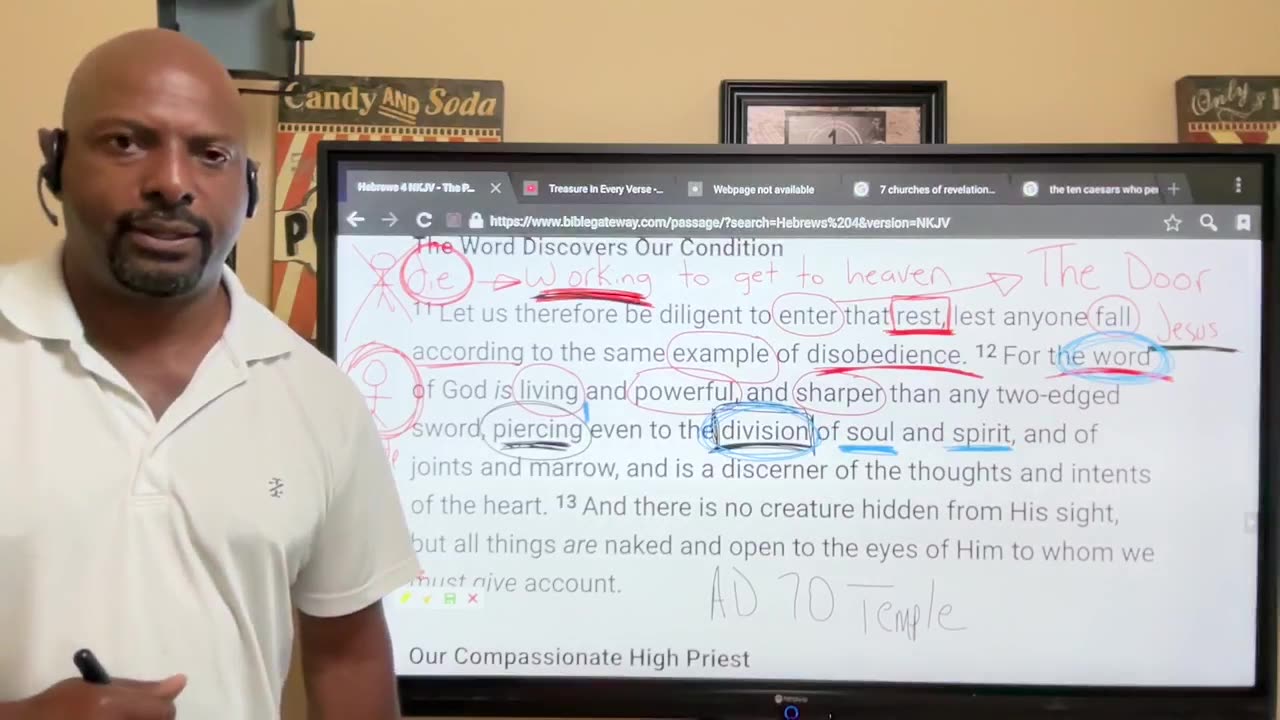 Candy AND Soda
Only
1
Hebrews 4 NKJV - The P...
Treasure In Every Verse -...
Webpage not available
7 churches of revelation...
the ten caesars who per
https://www.biblegateway.com/passage/?search=Hebrews%204&version=NKJV
The Word Discovers Our Condition
die Working to get to heaven The Door
11 Let us therefore be diligent to enter that rest, lest anyone fall
Jesus
according to the same example of disobedience. 12 For the word
of God is living and powerful, and sharper than any two-edged
sword, piercing even to the division of soul and spirit, and of
joints and marrow, and is a discerner of the thoughts and intents
of the heart. 13 And there is no creature hidden from His sight,
but all things are naked and open to the eyes of Him to whom we
must give account.
AD 70 Temple
Our Compassionate High Priest